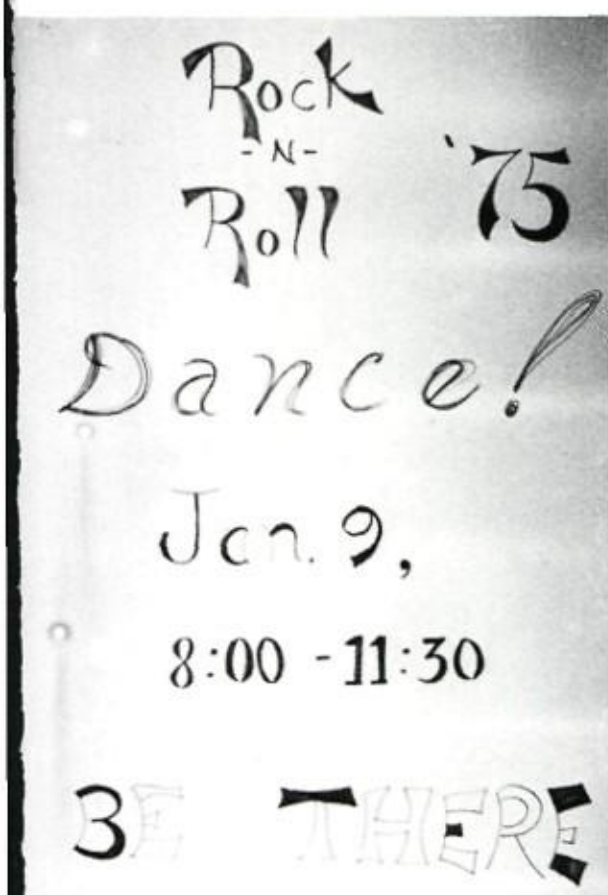 Rock
-N-
Roll '75
Dance!
Jan. 9,
8:00 - 11:30
BE THERE